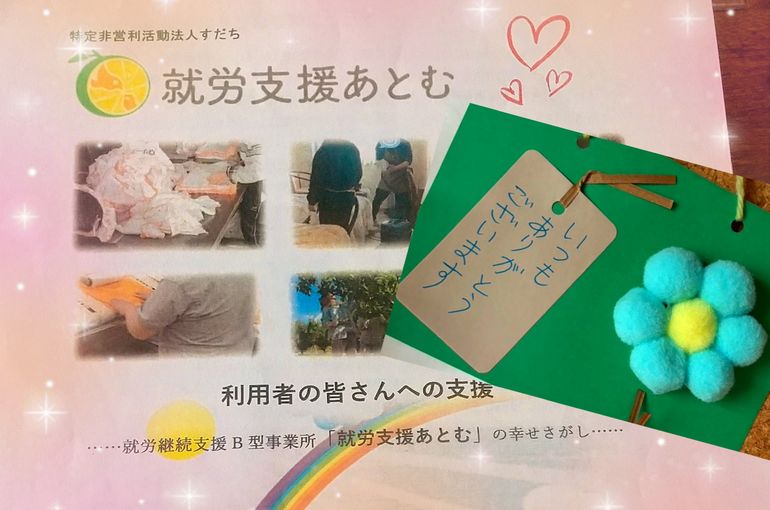 特定非営利活動法人すだち
就労支援あとむ
いつも
ありがとう
ございます
利用者の皆さんへの支援
……就労継続支援B型事業所「就労支援あとむ」の幸せさがし……